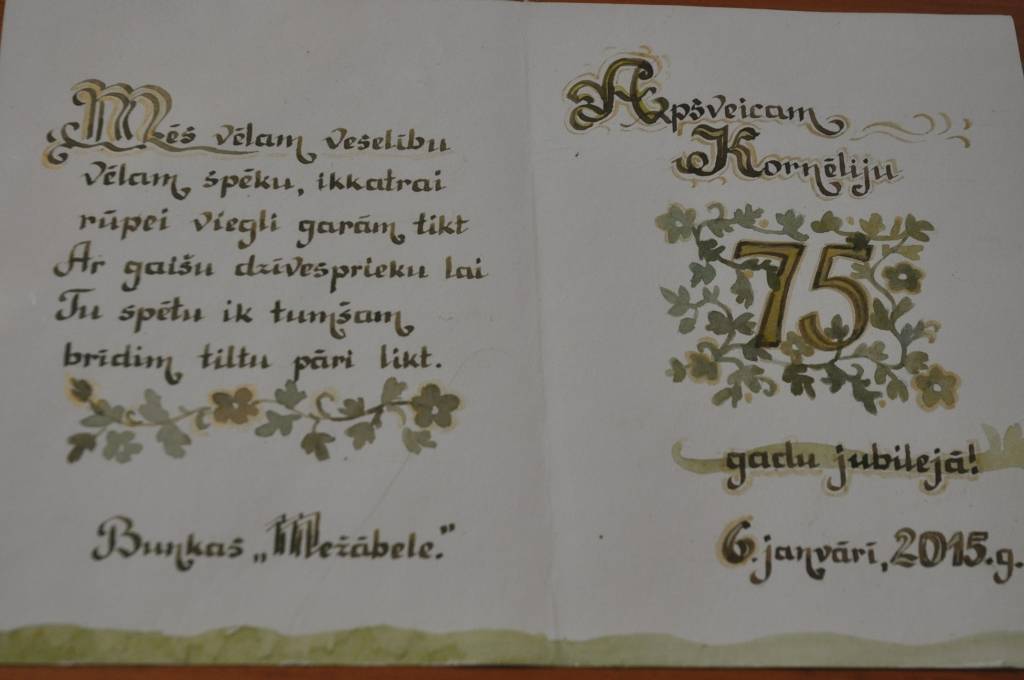 Mēs vēlam veselību
vēlam spēku, ikkatrai
rūpei viegli garām tikt
Ar gaišu dzīvesprieku lai
Tu spētu ik tumšam
brīdim tiltu pāri likt.
Bunkas „Mežābele."
Apšveicam
Kornēliju
75
gadu jubilejā!
6. janvārī, 2015.g.